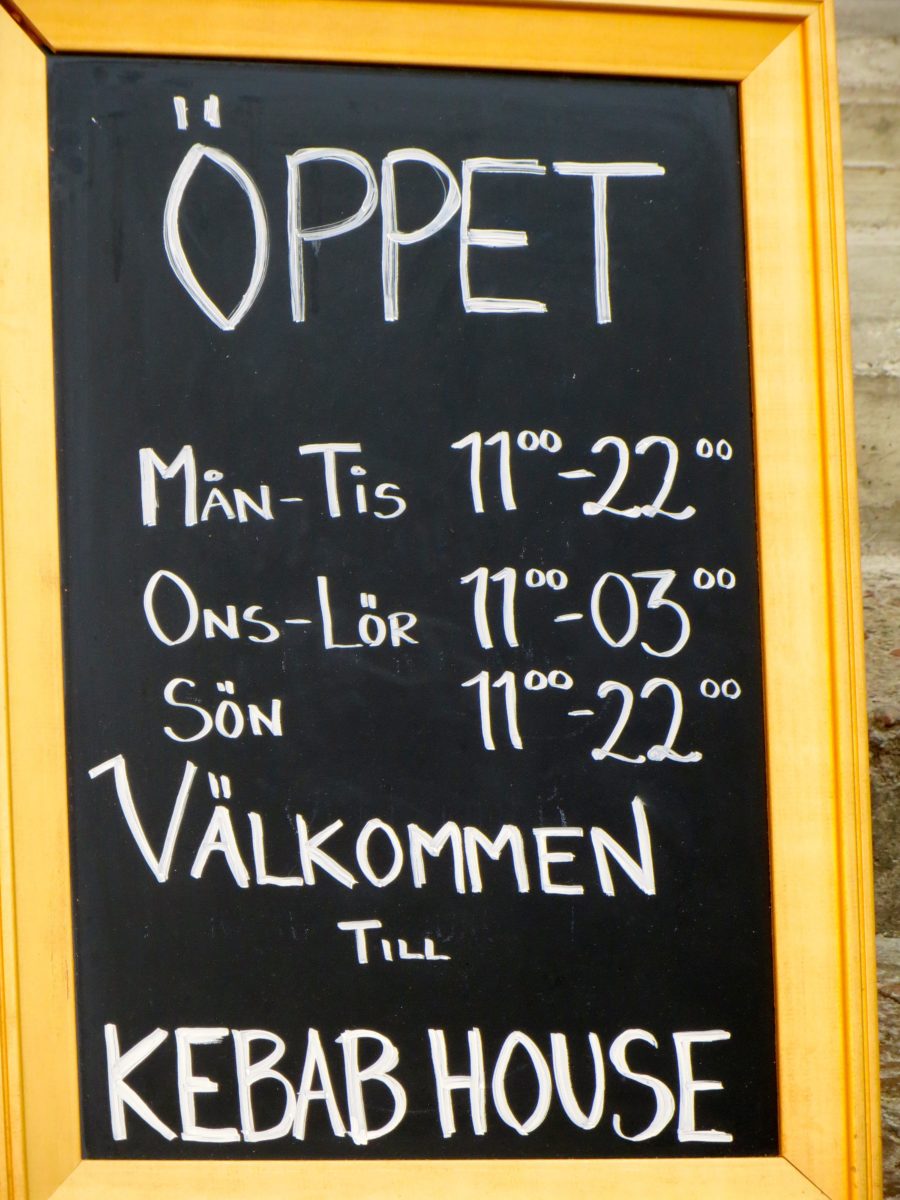 ÖPPET
MÅN-TIS 11⁰⁰-22⁰⁰
ONS-LÖR 11⁰⁰-03⁰⁰
SÖN 11⁰⁰-22⁰⁰
VÄLKOMMEN
TILL
KEBAB HOUSE